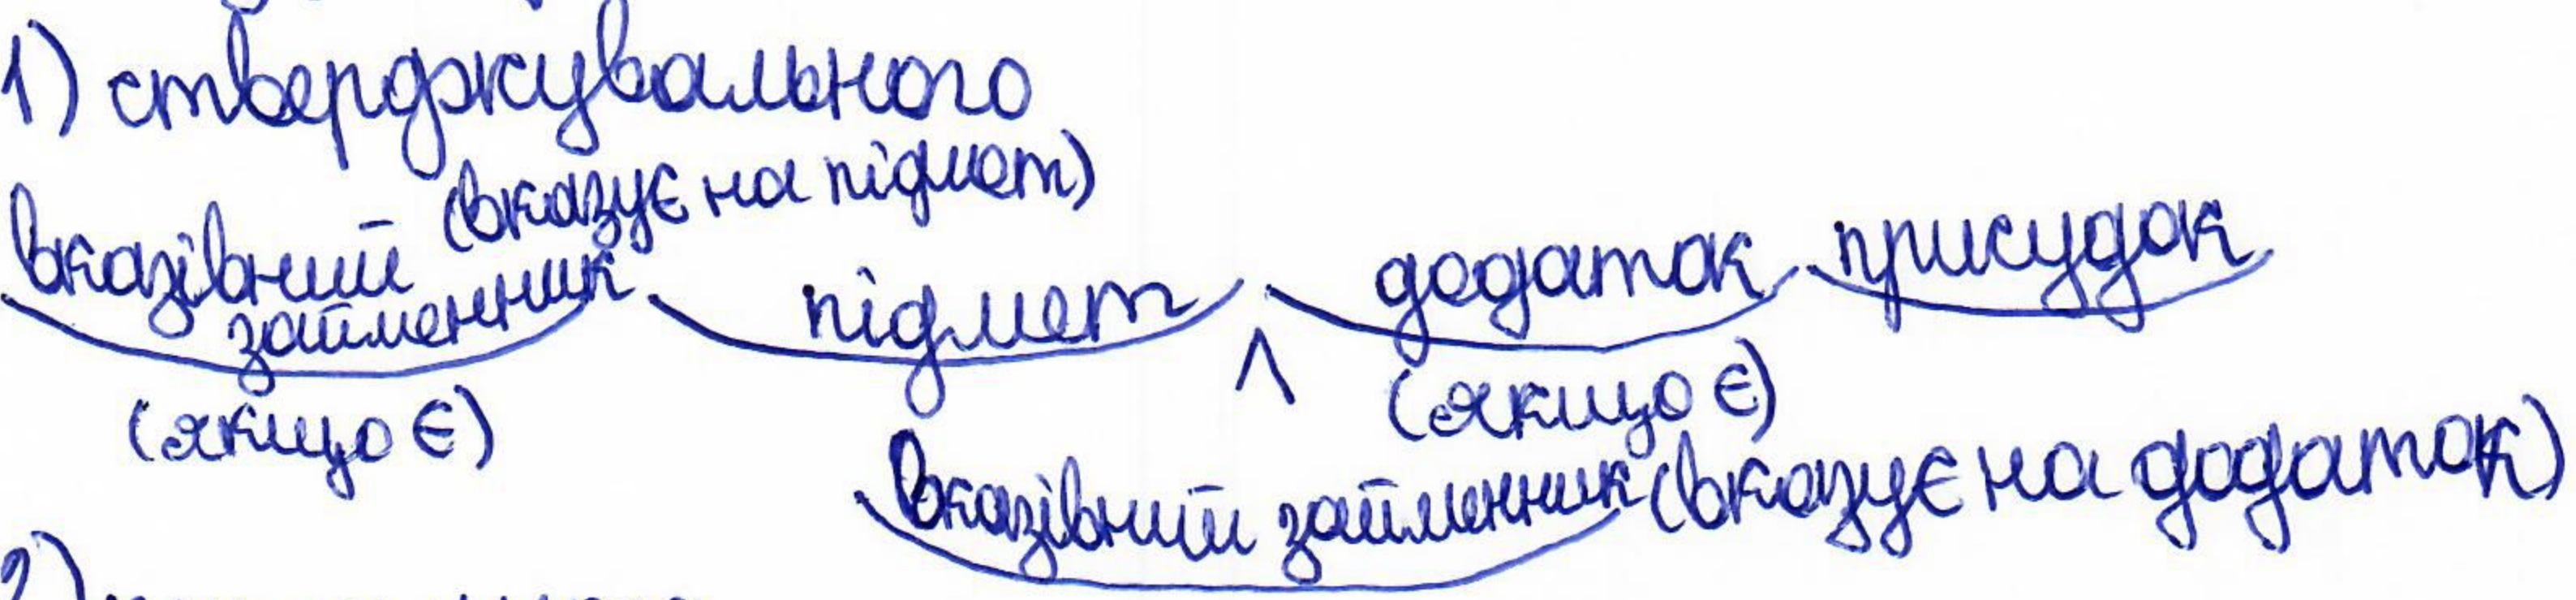 1) стверджувального
(вказує на підмет)
вказівний займенник підмет додаток присудок
^
(якщо є) (якщо є)
вказівний займенник (вказує на додаток)
2)